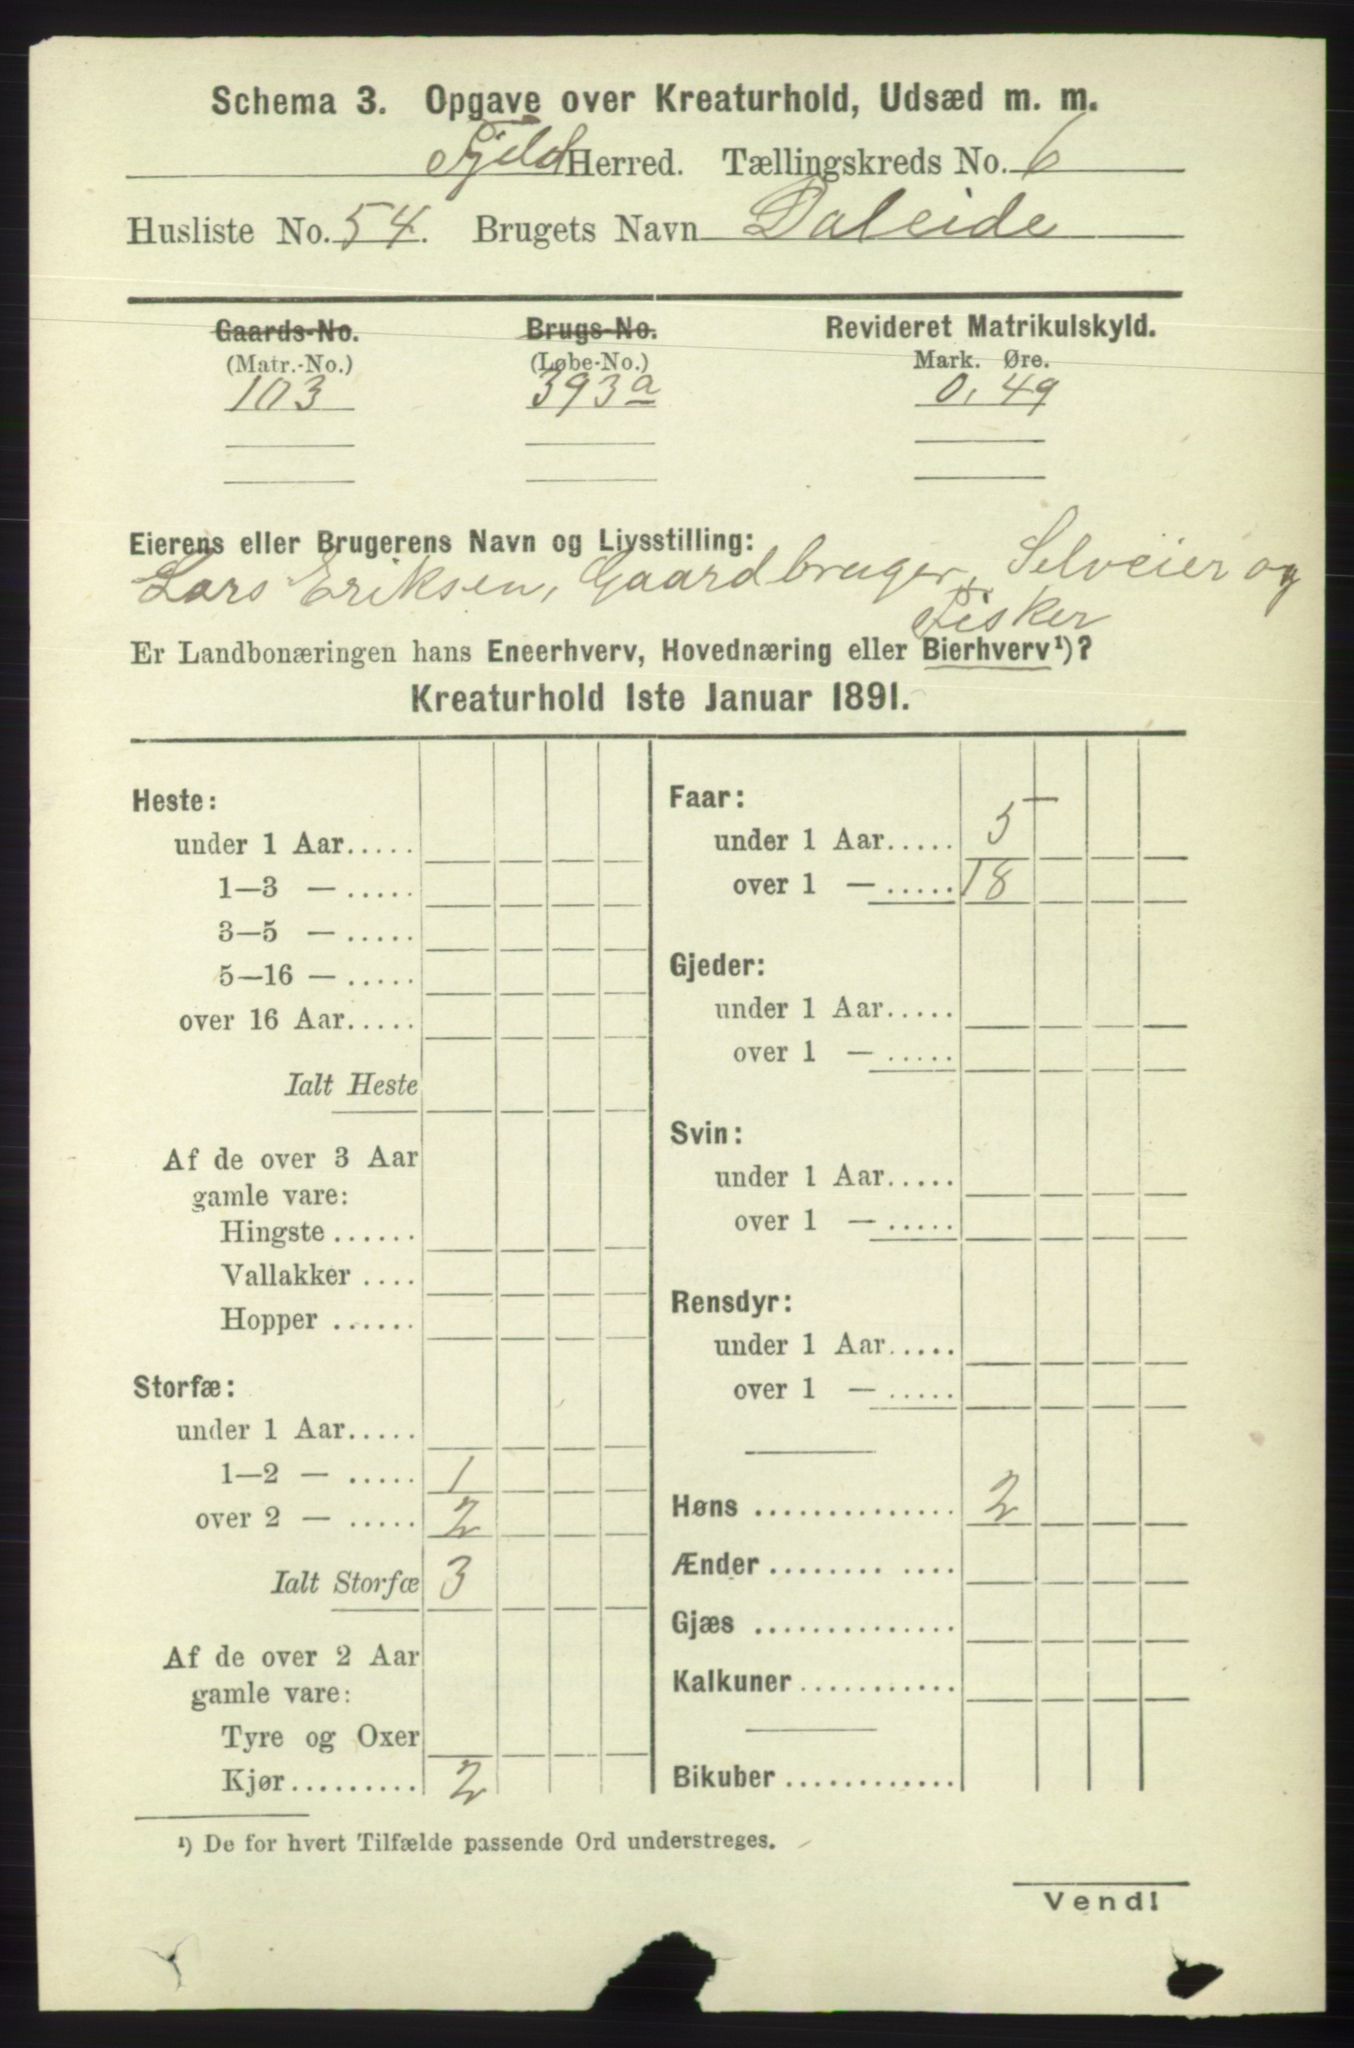 Schema 3. Opgave over Kreaturhold, Udsæd m. m.
Fjeld Herred. Tællingskreds No. 6
Husliste No. 54. Brugets Navn Daleide
Gaards-No. Brugs-No. Revideret Matrikulskyld.
(Matr.-No.) (Løbe-No.) Mark. Øre.
103 393a 0,49
Eierens eller Brugerens Navn og Livsstilling:
Lars Eriksen, Gaardbruger, Selveier og
Fisker
Er Landbonæringen hans Eneerhverv, Hovednæring eller Bierhverv¹)?
Kreaturhold 1ste Januar 1891.
Heste:
under 1 Aar.....
1—3 — .....
3—5 — .....
5—16 — .....
over 16 Aar.....
Ialt Heste
Af de over 3 Aar
gamle vare:
Hingste ......
Vallakker ....
Hopper ......
Storfæ:
under 1 Aar.....
1—2 — ..... 1
over 2 — ..... 2
Ialt Storfæ 3
Af de over 2 Aar
gamle vare:
Tyre og Oxer
Kjør......... 2
Faar:
under 1 Aar..... 5
over 1 — ..... 18
Gjeder:
under 1 Aar.....
over 1 — .....
Svin:
under 1 Aar.....
over 1 — .....
Rensdyr:
under 1 Aar.....
over 1 — .....
Høns .............. 2
Ænder ........ ....
Gjæs ..............
Kalkuner ...........
Bikuber .............
¹) De for hvert Tilfælde passende Ord understreges.
Vend!